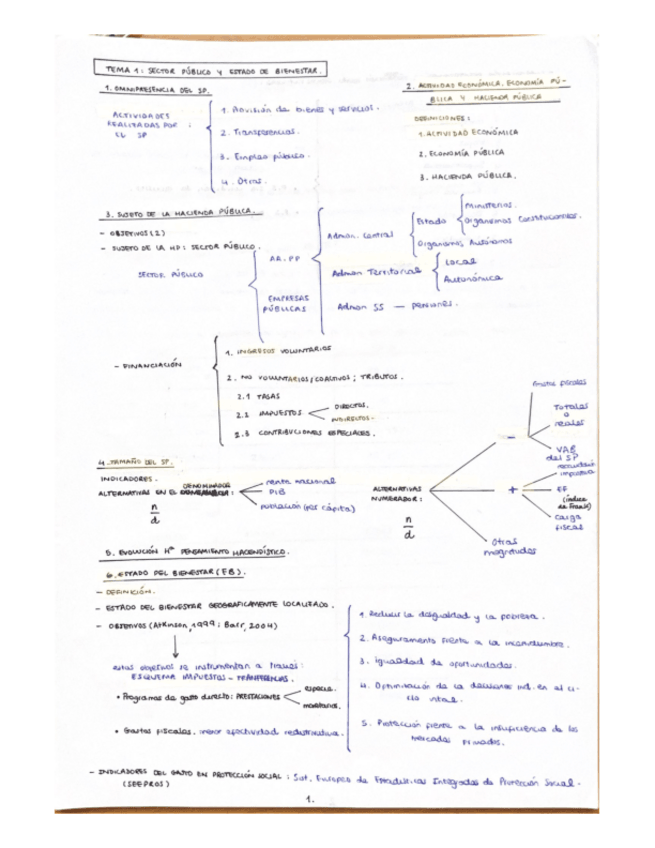 TEMA 1: SECTOR PÚBLICO Y ESTADO DE BIENESTAR.
1. OMNIPRESENCIA DEL SP.
ACTIVIDADES
REALIZADAS POR :
EL SP
1. Provisión de bienes y servicios.
2. Transferencias.
3. Empleo público.
4. Otras.
2. ACTIVIDAD ECONÓMICA. ECONOMÍA PÚ-
BLICA Y HACIENDA PÚBLICA
DEFINICIONES:
1. ACTIVIDAD ECONÓMICA
2. ECONOMÍA PÚBLICA
3. HACIENDA PÚBLICA.
3. SUJETO DE LA HACIENDA PÚBLICA.
- OBJETIVOS (2)
- SUJETO DE LA HP: SECTOR PÚBLICO.
SECTOR PÚBLICO
AA.PP
EMPRESAS
PÚBLICAS
Admon. Central
Estado
Ministerios.
Organismos Constitucionales.
Organismos Autónomos
Admon Territorial
Local
Autonómica
Admon SS — pensiones.
- FINANCIACIÓN
1. INGRESOS VOLUNTARIOS
2. NO VOLUNTARIOS/COACTIVOS; TRIBUTOS.
2.1 TASAS
2.2 IMPUESTOS
DIRECTOS.
INDIRECTOS.
2.3 CONTRIBUCIONES ESPECIALES.
4. TAMAÑO DEL SP.
INDICADORES.
DENOMINADOR
ALTERNATIVAS EN EL :
n
d
renta nacional
PIB
población (per cápita)
ALTERNATIVAS
NUMERADOR:
n
d
-
Gastos fiscales
Totales
o
reales
VAB
del SP
+
recaudación
impositiva
EF
(índice
de Frank)
Carga
fiscal
Otras
magnitudes
5. EVOLUCIÓN Hª PENSAMIENTO HACENDÍSTICO.
6. ESTADO DEL BIENESTAR (EB).
- DEFINICIÓN.
- ESTADO DEL BIENESTAR GEOGRÁFICAMENTE LOCALIZADO.
- OBJETIVOS (Atkinson, 1999; Barr, 2004)
estos objetivos se instrumentan a través:
ESQUEMA IMPUESTOS - TRANSFERENCIAS.
• Programas de gasto directo: PRESTACIONES
especie.
monetarios.
• Gastos fiscales. menor efectividad redistributiva.
1. Reducir la desigualdad y la pobreza.
2. Aseguramiento frente a la incertidumbre.
3. igualdad de oportunidades.
4. Optimización de la decisiones ind. en el ci-
clo vital.
5. Protección frente a la insuficiencia de los
mercados privados.
- INDICADORES DEL GASTO EN PROTECCIÓN SOCIAL: Sist. Europeo de Estadísticas Integradas de Protección Social.
(SEEPROS)
1.